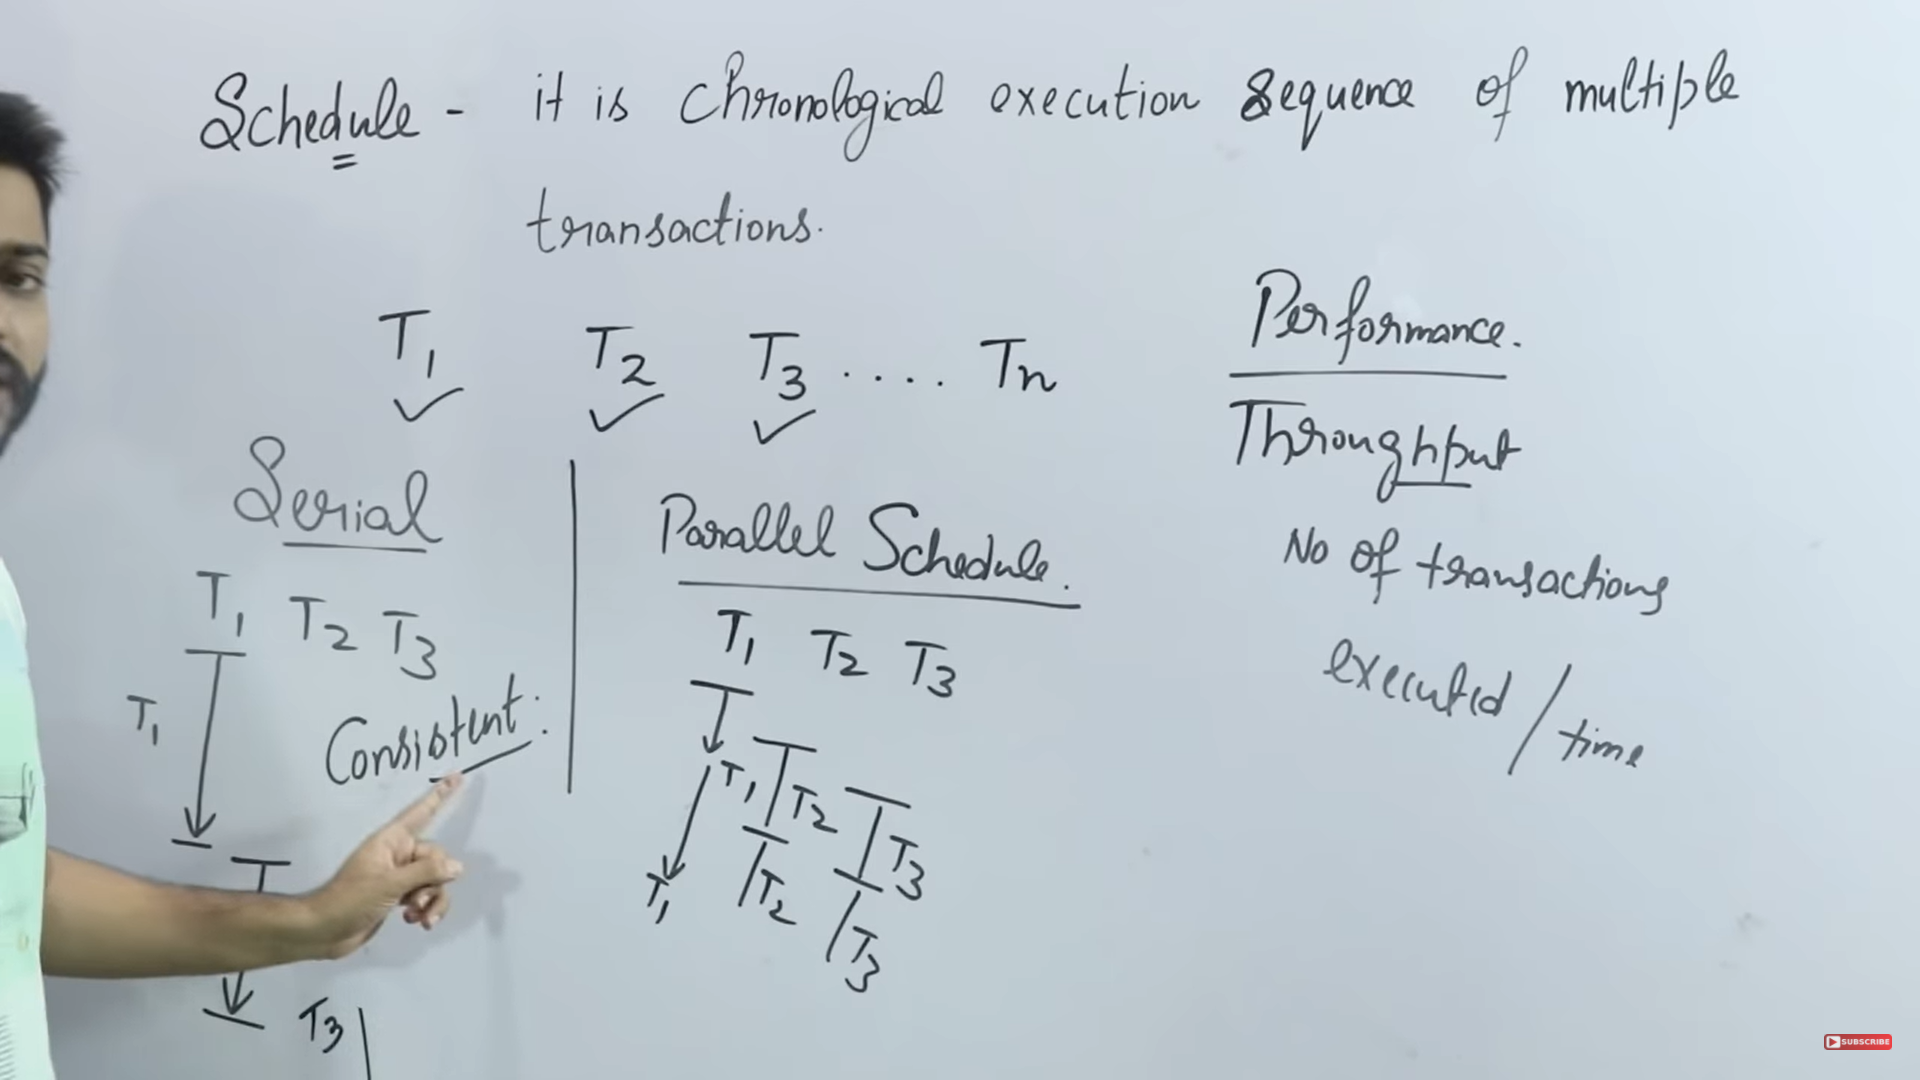 Schedule - it is Chronological execution Sequence of multiple
transactions.
T1 T2 T3 .... Tn
Serial
T1 T2 T3
T1
Consistent:
T3
Parallel Schedule.
T1 T2 T3
T1 T2 T3
T1 T2 T3
Performance.
Throughput
No of transactions
executed / time
SUBSCRIBE